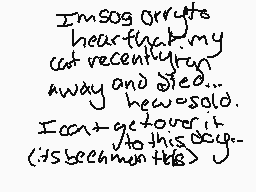 Imsog orryto
hearthat.my
cat recentlyran
away and died...
hewasold.
I cant getover it
to this day..
(its been months)